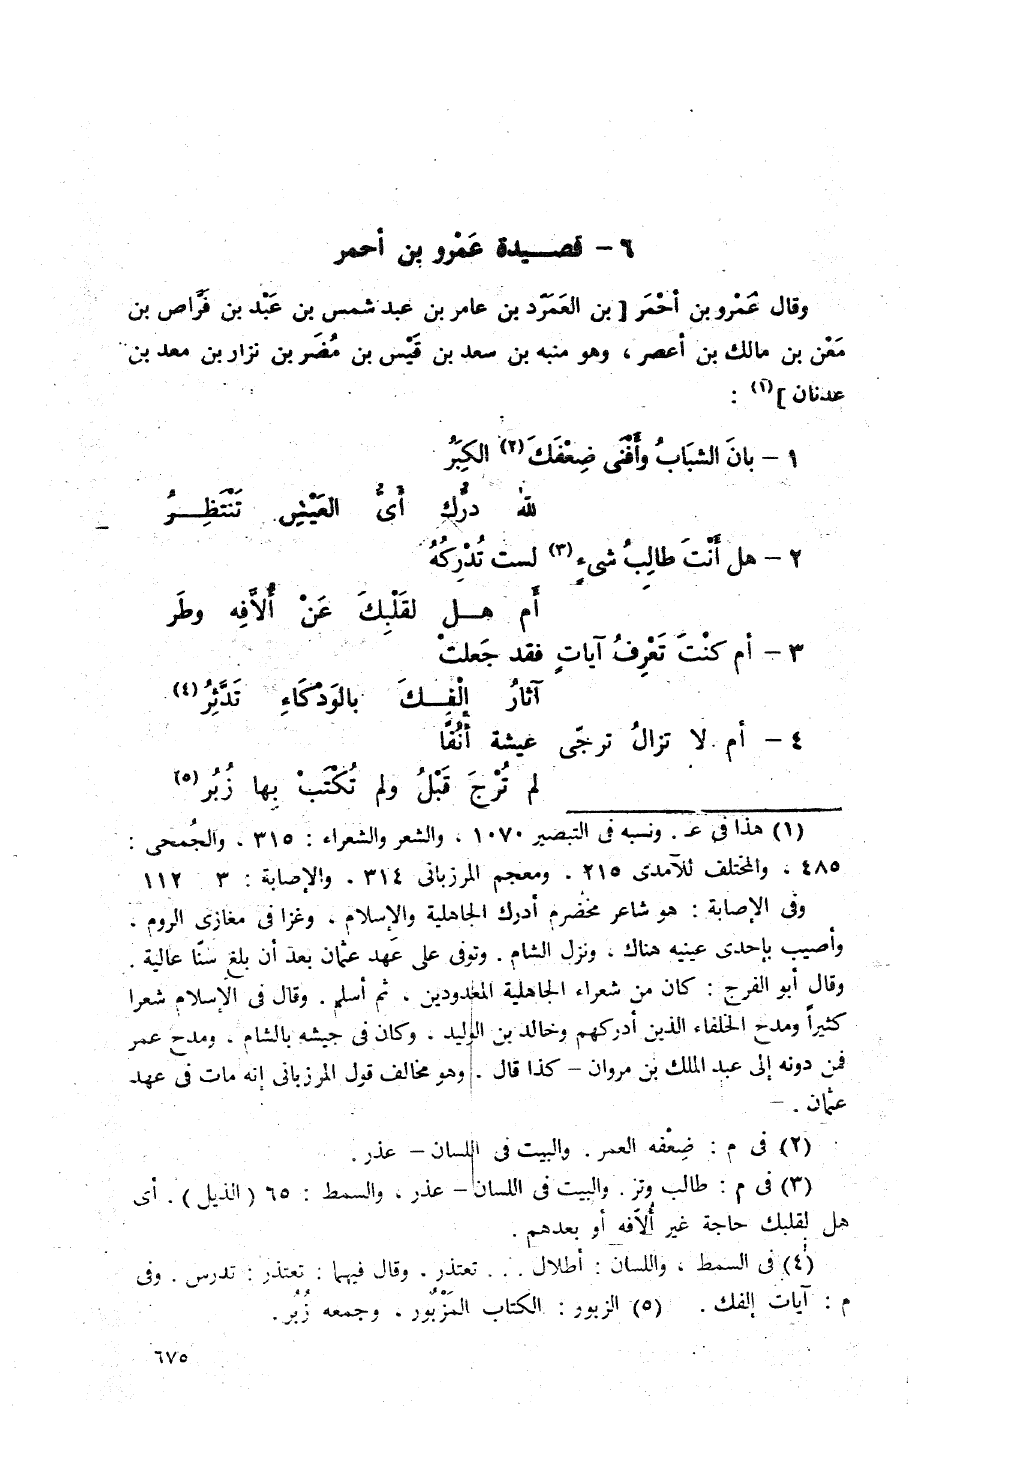 ٦ – قصـــيدة عَمْرو بن أحمر
وقال عَمْرو بن أحْمَر [ بن العَمَرّد بن عامر بن عبد شمس بن عَبْد بن فَرَّاص بن
مَعْن بن مالك بن أعصر ، وهو منبه بن سعد بن قَيْس بن مُضَر بن نزار بن معد بن
عدنان ](١) :
١ – بانَ الشبَابُ وأَفْنَى ضِعْفَكَ(٢) الكِبَرُ
للهِ درُّكِ أىَّ العَيْشِ تَنْتَظِـــرُ
٢ – هل أَنْتَ طالِبُ شىءٍ(٣) لست تُدْرِكُهُ
أَم هـــل لقَلْبِكَ عَنْ أُلاَّفِه وطَر
٣ – أم كنْتَ تَعْرِفُ آيات فقد جَعلتْ
آثارُ إِلْفِـــكَ بالوَدْكَاءِ تَدَّثِرُ(٤)
٤ – أم لا تزالُ ترجّى عيشة أُنُفًا
لم تُرْجَ قَبْلُ ولم تُكْتَبْ بِها زُبُر(٥)
(١) هذا فى عـ . ونسبه فى التبصير ١٠٧٠ ، والشعر والشعراء : ٣١٥ ، والجُمحى :
٤٨٥ ، والمختلف للآمدى ٢١٥ . ومعجم المرزبانى ٣١٤ . والإصابة : ٣ ١١٢
وفى الإصابة : هو شاعر مخضرم أدرك الجاهلية والإسلام ، وغزا فى مغازى الروم .
وأصيب بإحدى عينيه هناك ، ونزل الشام . وتوفى على عَهد عثمان بعد أن بلغ سنّا عالية .
وقال أبو الفرج : كان من شعراء الجاهلية المعدودين ، ثم أسلم . وقال فى الإسلام شعرا
كثيراً ومدح الخلفاء الذين أدركهم وخالد بن الوليد . وكان فى جيشه بالشام . ومدح عمر
فمن دونه إلى عبد الملك بن مروان – كذا قال . وهو مخالف قول المرزبانى إنه مات فى عهد
عثمان . –
(٢) فى م : ضِعْفه العمر . والبيت فى اللسان – عذر .
(٣) فى م : طالب وتز . والبيت فى اللسان – عذر ، والسمط : ٦٥ ( الذيل ) . أى
هل لقلبك حاجة غير أُلاَّفه أو بعدهم .
(٤) فى السمط ، واللسان : أطلال . . . تعتذر . وقال فيهما : تعتذر : تدرس . وفى
م : آيات إلفك . (٥) الزبور : الكتاب المَزْبُور . وجمعه زُبُر .
٦٧٥